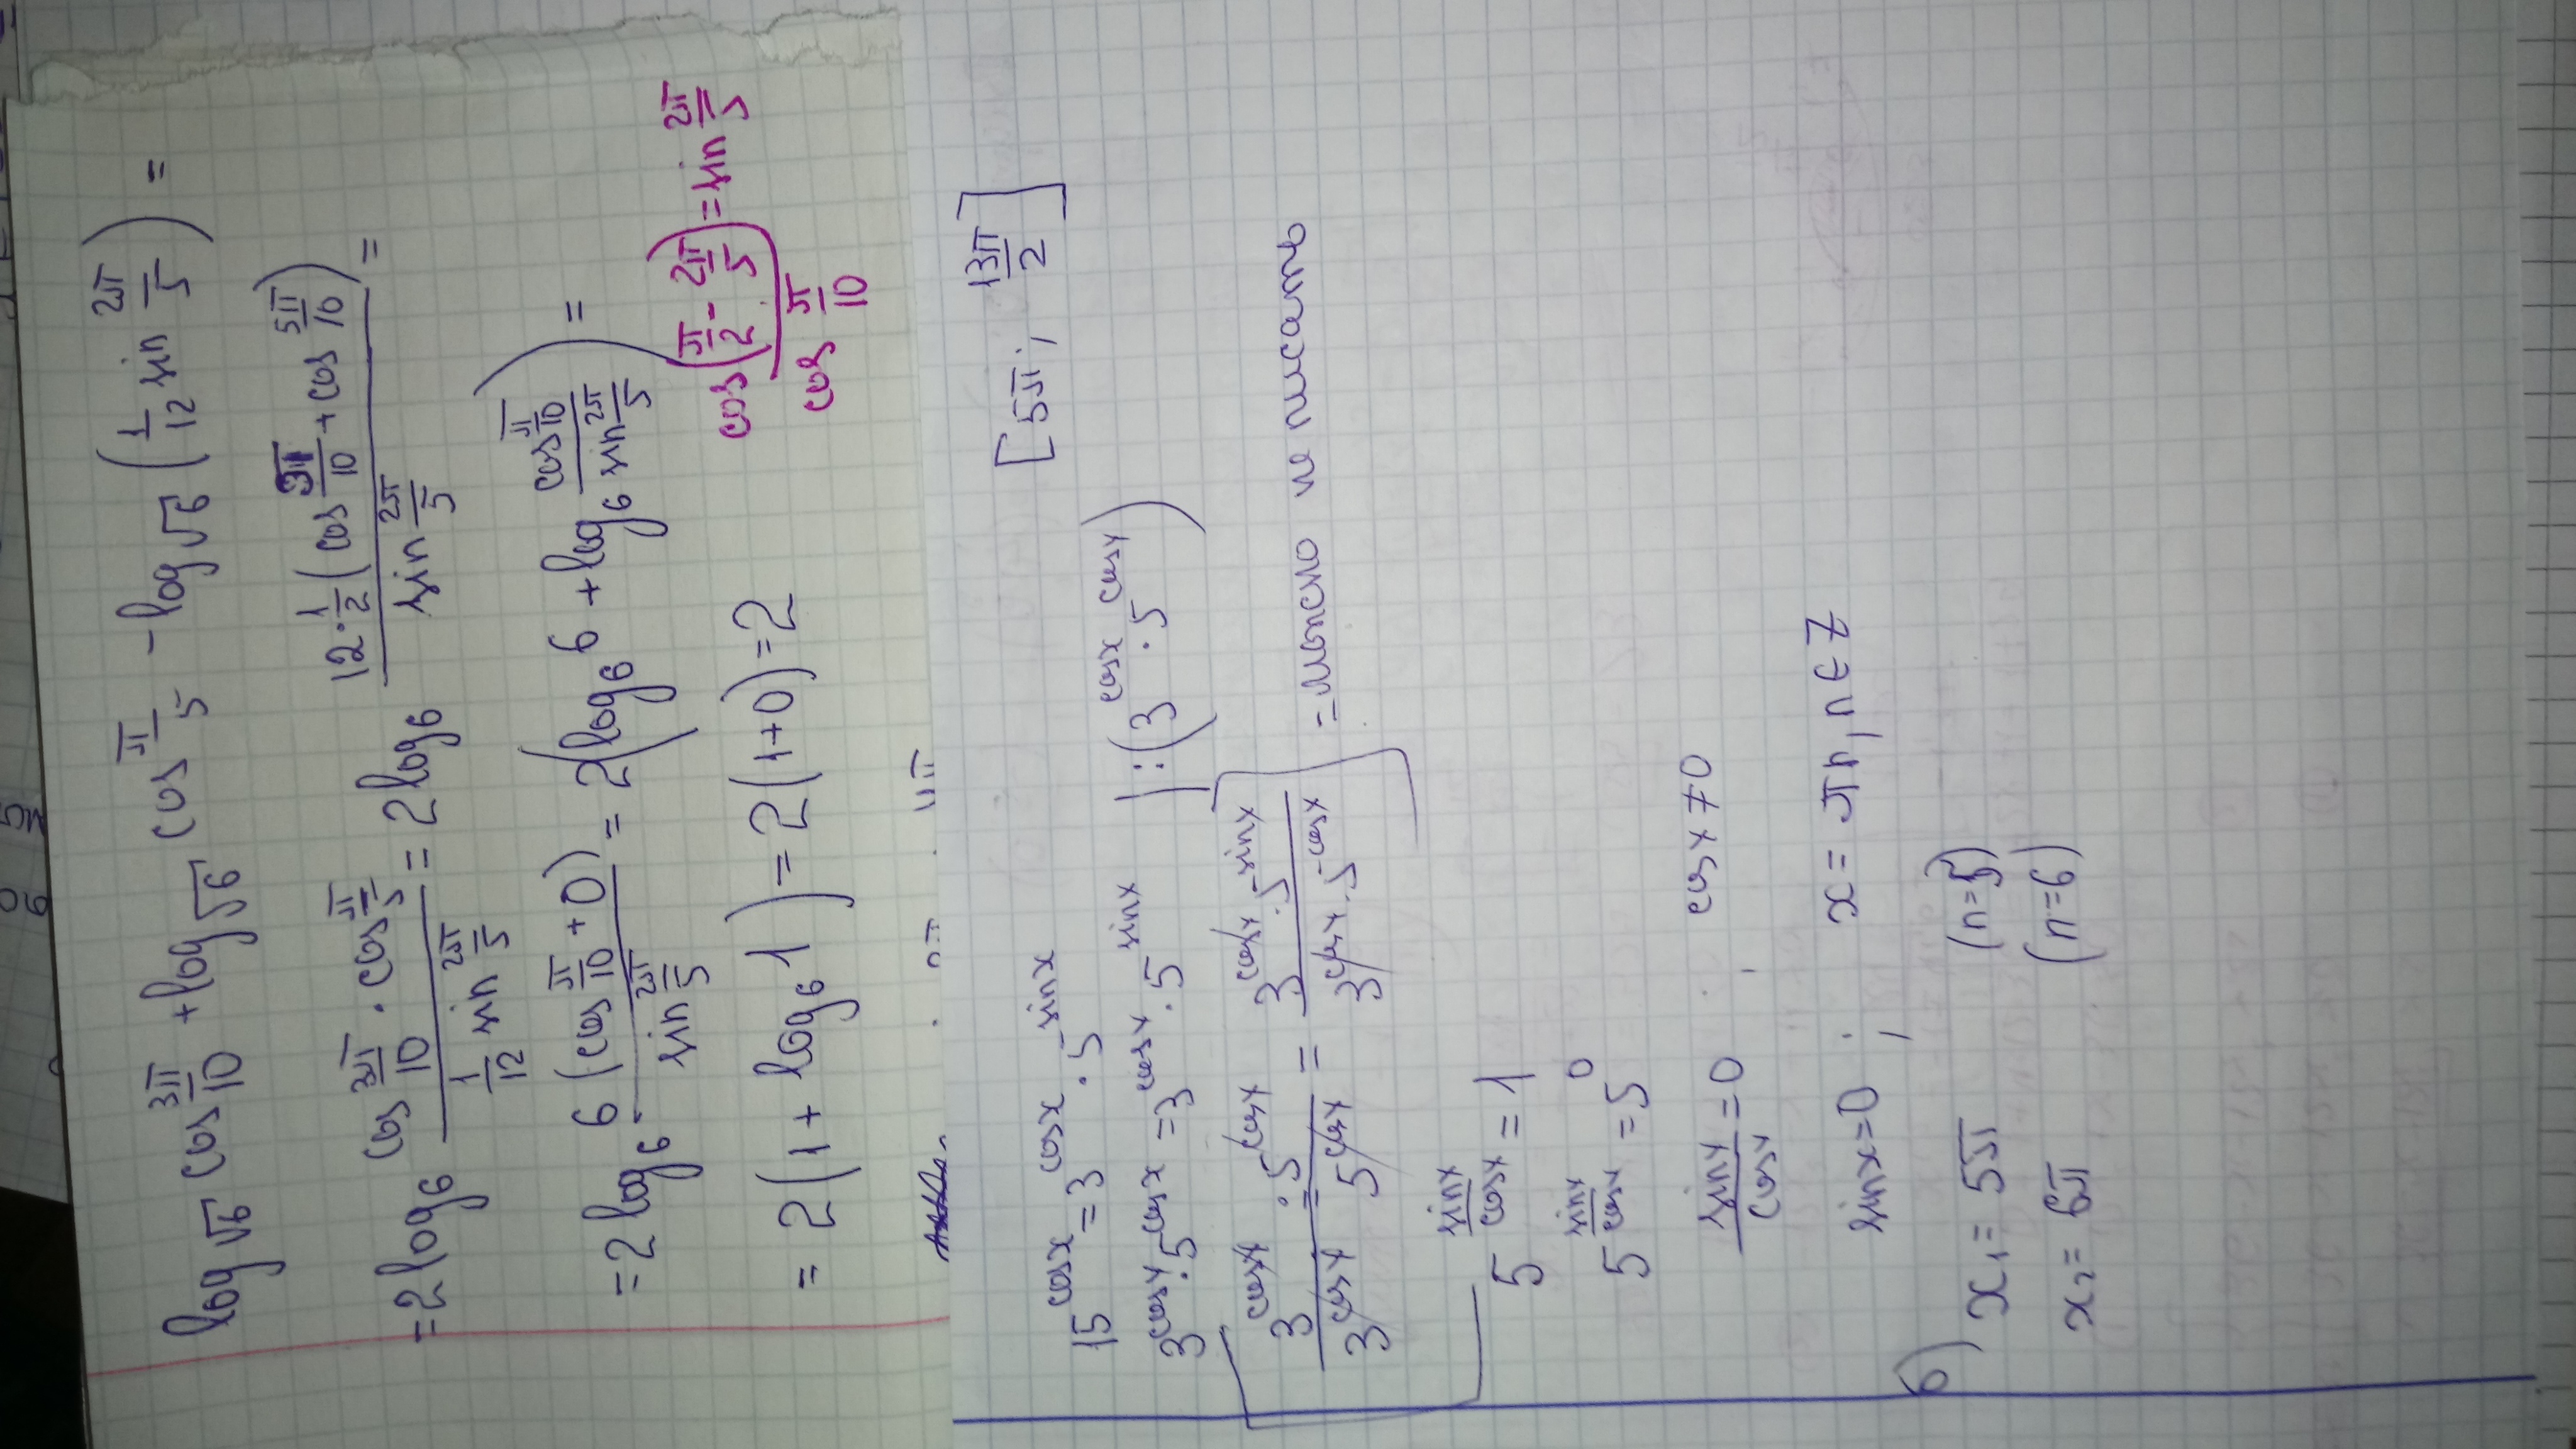 log√6 cos 3π/10 + log√6 cos π/5 - log√6 (1/12 sin 2π/5) =
= 2log6 (cos 3π/10 · cos π/5)/(1/12 sin 2π/5) = 2log6 (12·1/2(cos π/10 + cos 5π/10))/(sin 2π/5) =
= 2log6 (6(cos π/10 + 0))/(sin 2π/5) = 2(log6 6 + log6 (cos π/10)/(sin 2π/5)) =
= 2(1 + log6 1) = 2(1+0) = 2
cos(π/2 - 2π/5) = sin 2π/5
cos π/10
15^cosx = 3^cosx · 5^-sinx [5π; 13π/2]
3^cosx · 5^cosx = 3^cosx · 5^-sinx |:(3^cosx · 5^cosx)
(3^cosx · 5^cosx)/(3^cosx · 5^cosx) = (3^cosx · 5^-sinx)/(3^cosx · 5^cosx) = можно не писать
5^(sinx/cosx) = 1
5^(sinx/cosx) = 5^0
sinx/cosx = 0 ; cosx ≠ 0
sinx = 0 ; x = πn, n ∈ Z
б) x₁ = 5π (n=5)
x₂ = 6π (n=6)